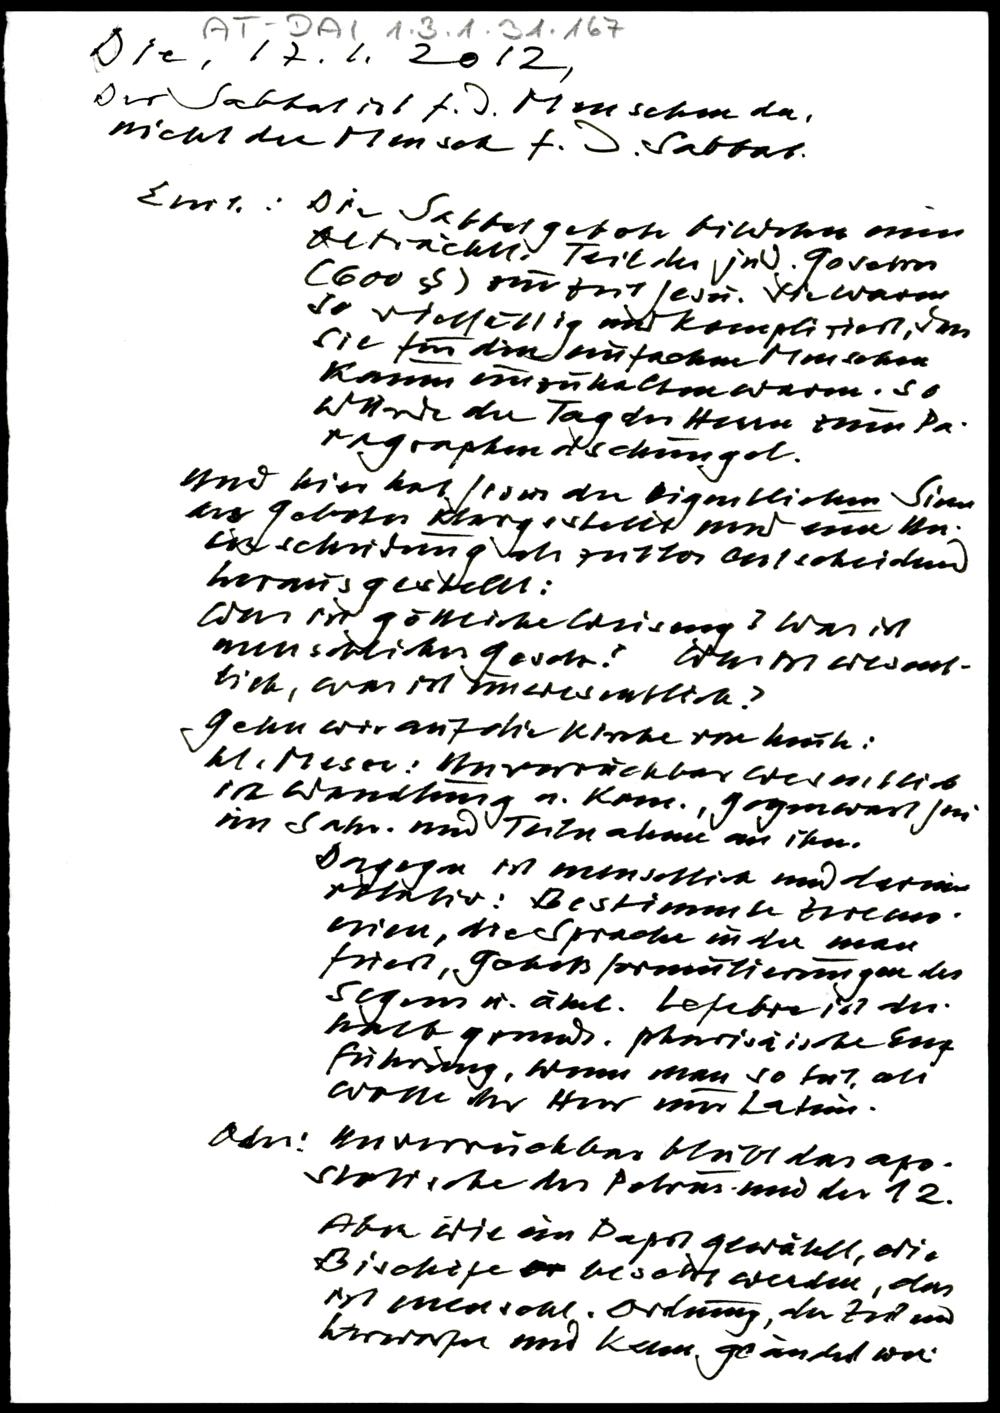 AT-DAI 1.3.1.31.167
Die, 17.1.2012,
Der Sabbat ist f. d. Menschen da,
nicht der Mensch f. d. Sabbat.
Einl.: Die Sabbatgebote bildeten einen
beträchtl. Teil der jüd. Gesetze
(600 §) zur Zeit Jesu. Sie waren
so vielfältig und kompliziert, dass
sie für den einfachen Menschen
kaum einzuhalten waren. So
wurde der Tag des Herrn zum Pa-
ragraphendschungel.
Und hier hat Jesus den eigentlichen Sinn
des Gebotes klargestellt und eine Un-
terscheidung als zeitlos entscheidend
herausgestellt:
Was ist göttliche Weisung? Was ist
menschliches Gesetz? Was ist wesent-
lich, was ist unwesentlich?
Gehn wir auf die Kirche von heute:
hl. Messe: Unverrückbar wesentlich
ist Wandlung u. Kom., Gegenwart Jesu
im Sakr. und Teilnahme an ihm.
Dagegen ist menschlich und darum
relativ: Bestimmte Zeremo-
nien, die Sprache in der man
feiert, Gebetsformulierungen des
Segens u. ähnl. Lefebre ist des-
halb grunds. pharisäische
führung, wenn man so tut, als
wolle der Herr nur Latein.
Oder: Unverrückbar bleibt das apo-
stolische des Petrus und der 12.
Aber wie ein Papst gewählt, wie
Bischöfe besetzt werden, das
ist menschl. Ordnung, der Zeit
unterworfen und kann geändert wer-